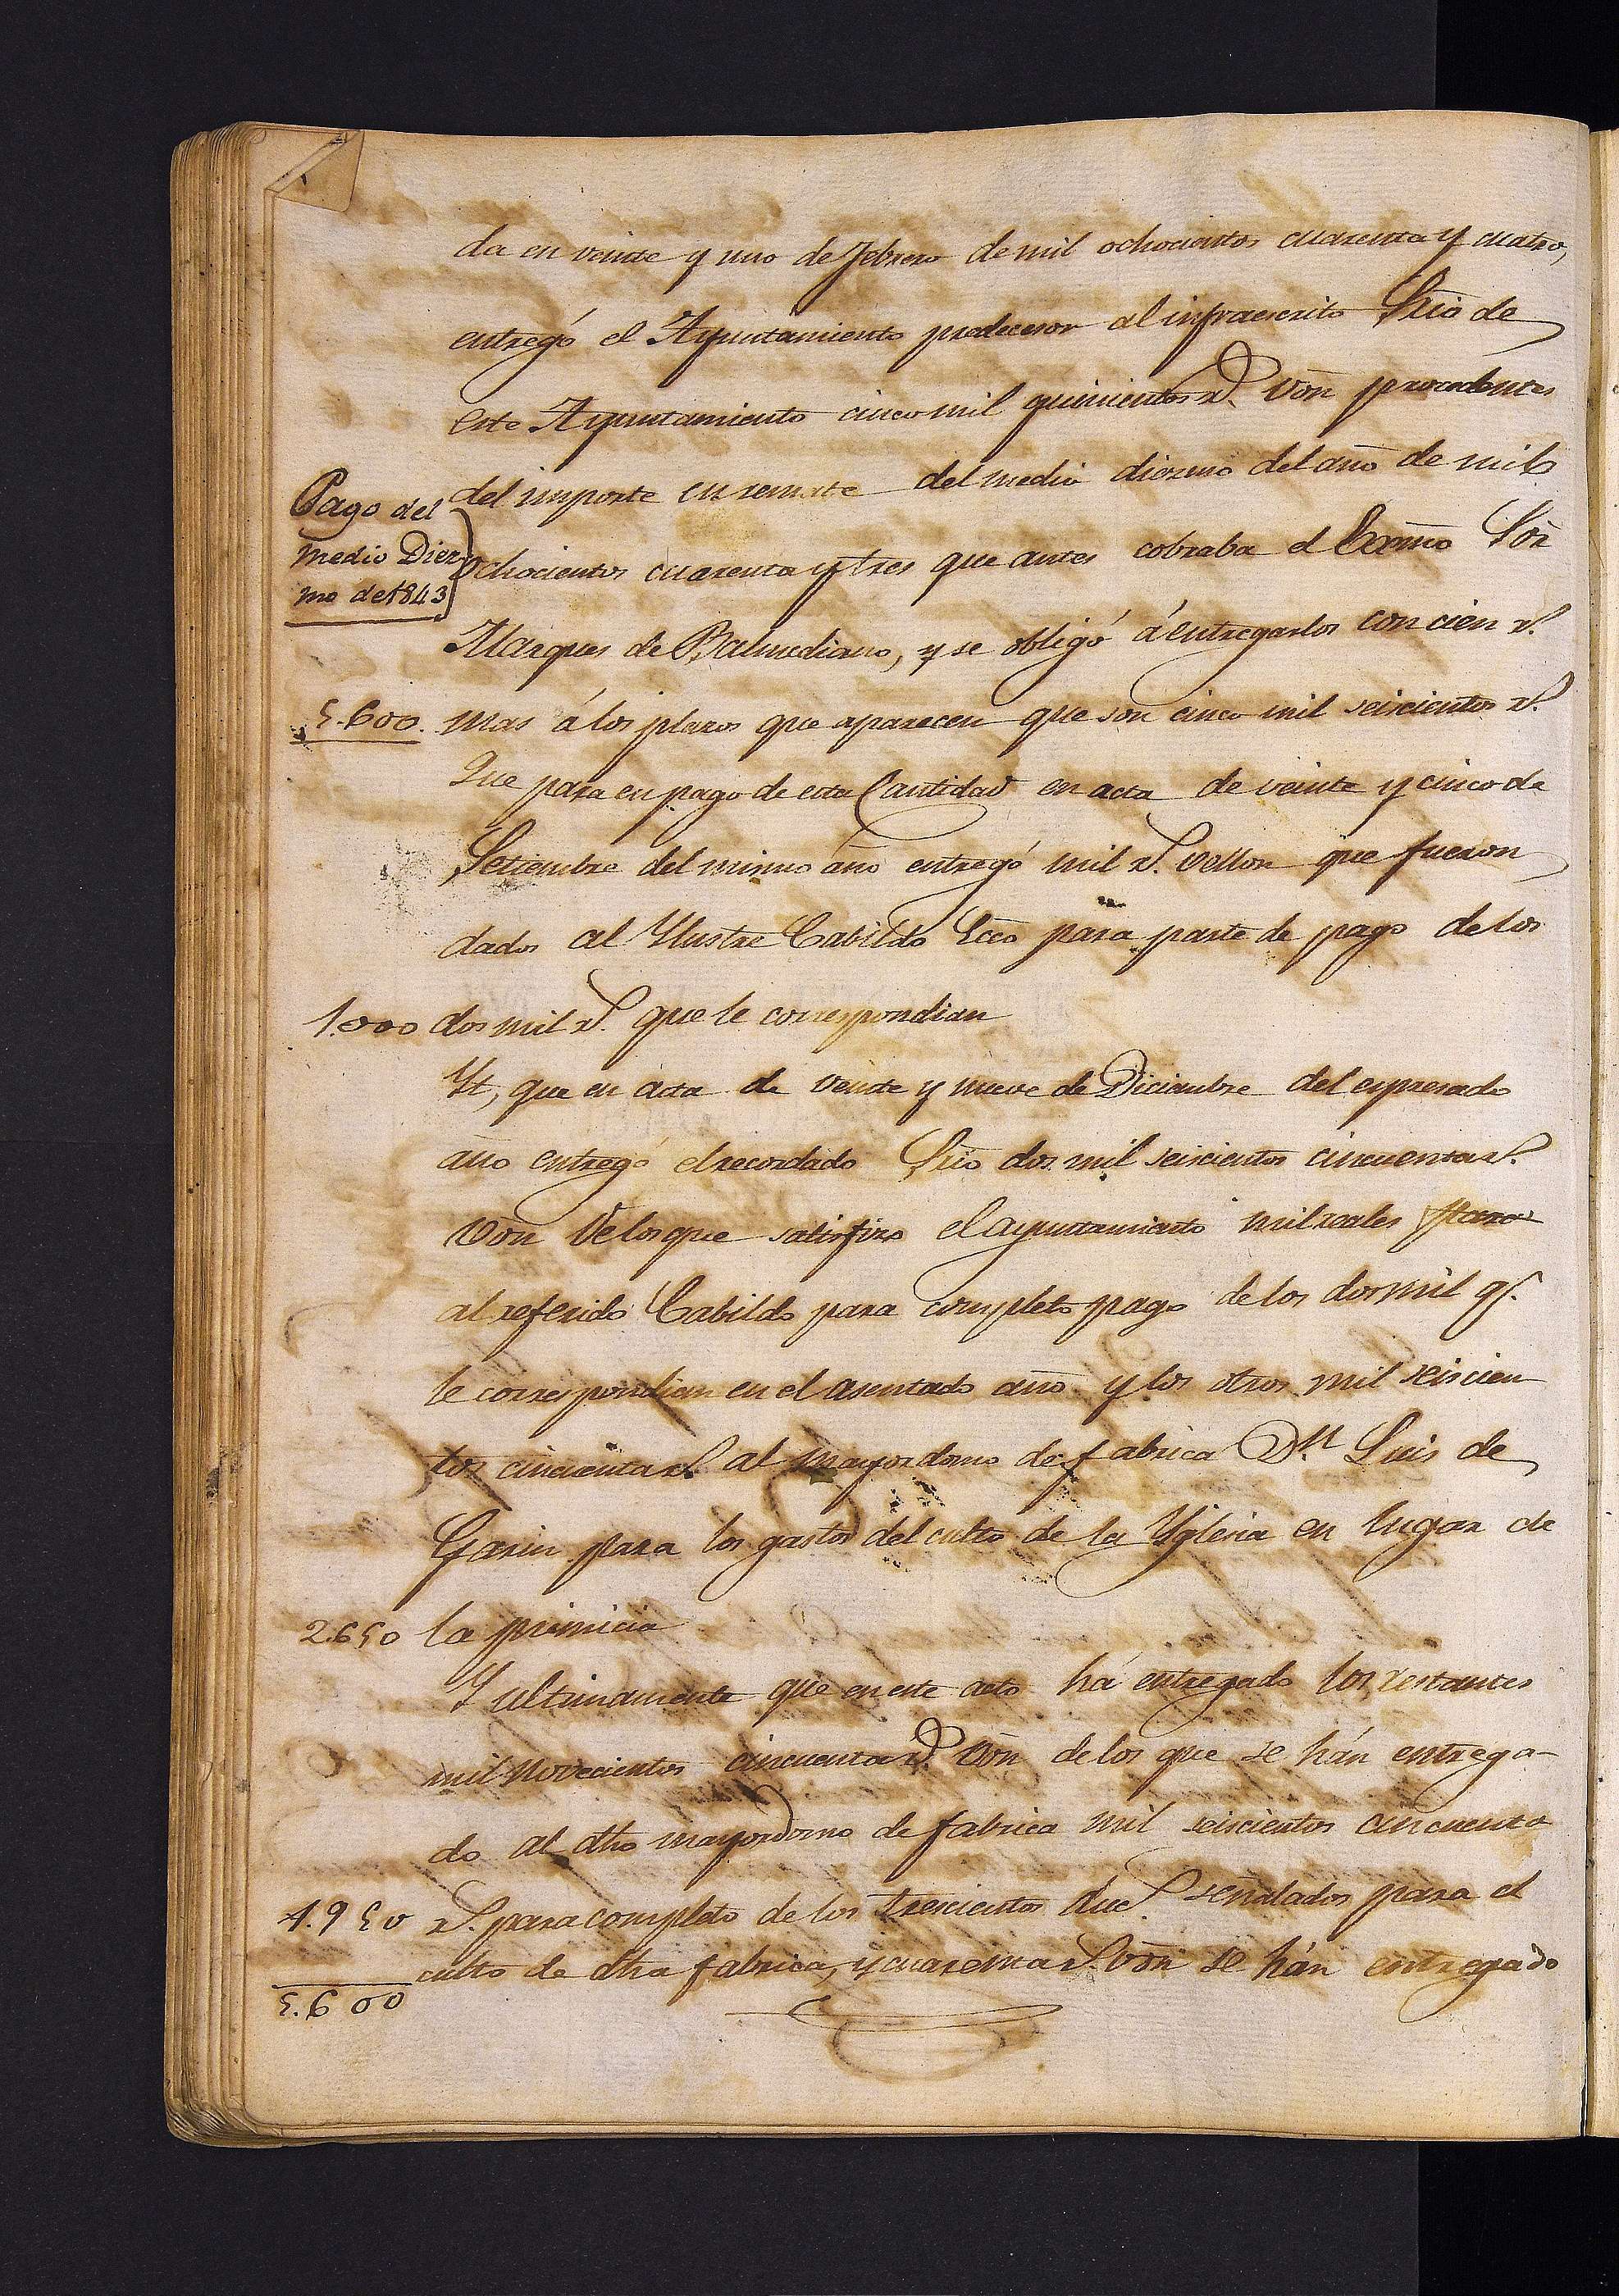 da en veinte y uno de Febrero de mil ochocientos cuarenta y cuatro,
entregó el Ayuntamiento predecesor al infraescrito Srio de
este Ayuntamiento cinco mil quinientos rs. Von procedentes
Pago del
medio Diez
mo de 1843
del importe en remate del medio diezmo del año de mil
ochocientos cuarenta y tres que antes cobraba el Exmo Sor
Marques de Balmediano, y se obligó á entregarlos con cien rs.
5.600. mas á los plazos que aparecen que son cinco mil seiscientos rs.
Que para en pago de esta Cantidad en acta de veinte y cinco de
Setiembre del mismo año entregó mil rs. vellon que fueron
dados al Ylustre Cabildo Ecco para parte de pago de los
1.000 dos mil rs. que le correspondian
Yt, que en acta de veinte y nueve de Diciembre del espresado
año entregó el recordado Srio dos mil seiscientos cincuenta rs.
Von de los que satisfizo el ayuntamiento mil reales para
al referido Cabildo para completo pago de los dos mil qe.
le correspondian en el asentado año y los otros mil seiscien
tos cincuenta rs. al mayordomo de fabrica Dn. Luis de
Garin para los gastos del culto de la Yglesia en lugar de
2.650 la primicia
Y ultimamente que en este acto há entregado los restantes
mil novecientos cincuenta rs. Von de los que se hán entrega-
do al dho mayordomo de fabrica mil seiscientos cincuenta
1.950 rs. para completo de los trescientos duc.s señalados para el
culto de dha fabrica, y cuarenta rs. von se hán entregado
5.600